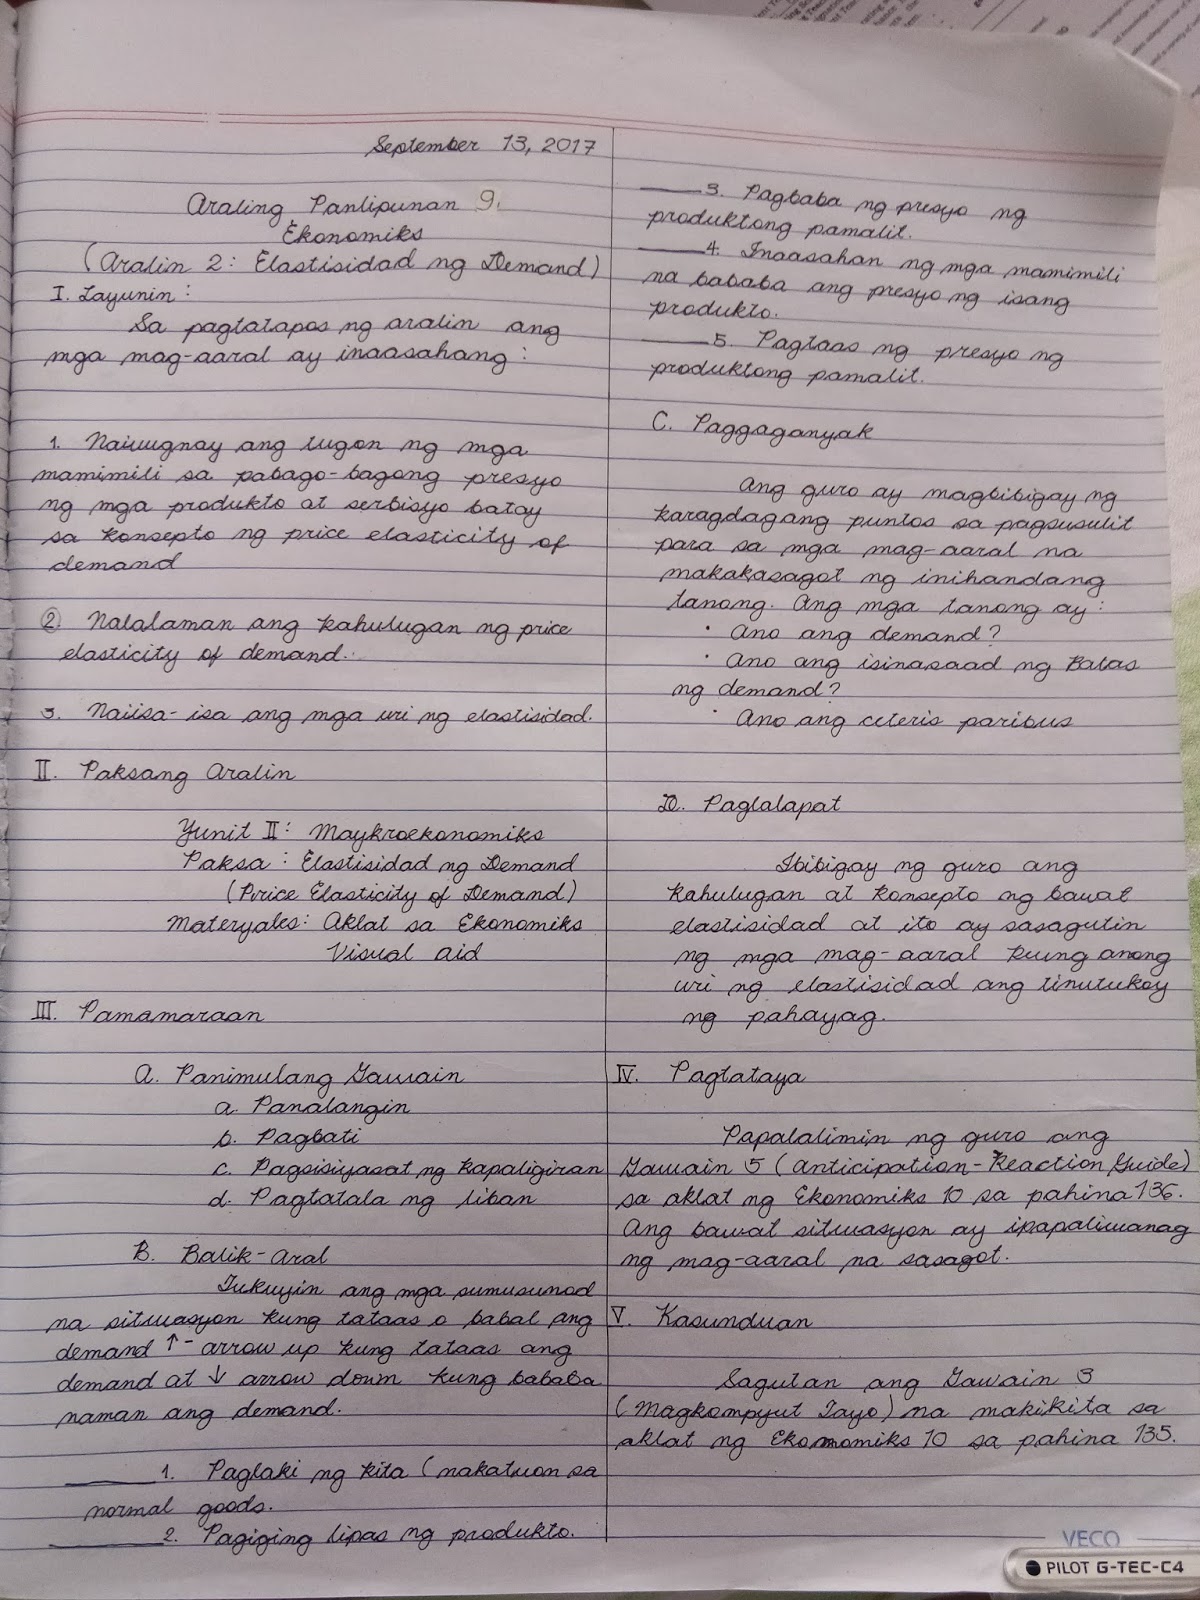 September 13, 2017
Araling Panlipunan 9.
Ekonomiks
(Aralin 2: Elastisidad ng Demand)
I. Layunin:
Sa pagtatapos ng aralin ang
mga mag-aaral ay inaasahang:
1. Naiuugnay ang tugon ng mga
mamimili sa pabago-bagong presyo
ng mga produkto at serbisyo batay
sa konsepto ng price elasticity of
demand
2. Nalalaman ang kahulugan ng price
elasticity of demand.
3. Naiisa-isa ang mga uri ng elastisidad.
II. Paksang Aralin
Yunit II: Maykroekonomiks
Paksa: Elastisidad ng Demand
(Price Elasticity of Demand)
Materyales: Aklat sa Ekonomiks
Visual aid
III. Pamamaraan
A. Panimulang Gawain
a. Panalangin
b. Pagbati
c. Pagsisiyasat ng kapaligiran
d. Pagtatala ng liban
B. Balik-Aral
Tukuyin ang mga sumusunod
na sitwasyon kung tataas o babal ang
demand ↑ - arrow up kung tataas ang
demand at ↓ arrow down kung bababa
naman ang demand.
______1. Paglaki ng kita (nakatuon sa
normal goods.
______2. Pagiging lipas ng produkto.
______3. Pagbaba ng presyo ng
produktong pamalit.
______4. Inaasahan ng mga mamimili
na bababa ang presyo ng isang
produkto.
______5. Pagtaas ng presyo ng
produktong pamalit.
C. Paggaganyak
Ang guro ay magbibigay ng
karagdagang puntos sa pagsusulit
para sa mga mag-aaral na
makakasagot ng inihandang
tanong. Ang mga tanong ay:
· Ano ang demand?
· Ano ang isinasaad ng Batas
ng demand?
· Ano ang ceteris paribus
D. Paglalapat
Ibibigay ng guro ang
kahulugan at konsepto ng bawat
elastisidad at ito ay sasagutin
ng mga mag-aaral kung anong
uri ng elastisidad ang tinutukoy
ng pahayag.
IV. Pagtataya
Papalalimin ng guro ang
Gawain 5 (Anticipation-Reaction Guide)
sa aklat ng Ekonomiks 10 sa pahina 136.
Ang bawat sitwasyon ay ipapaliwanag
ng mag-aaral na sasagot.
V. Kasunduan
Sagutan ang Gawain 3
(Magkompyut Tayo) na makikita sa
aklat ng Ekonomiks 10 sa pahina 135.
VECO
PILOT G-TEC-C4